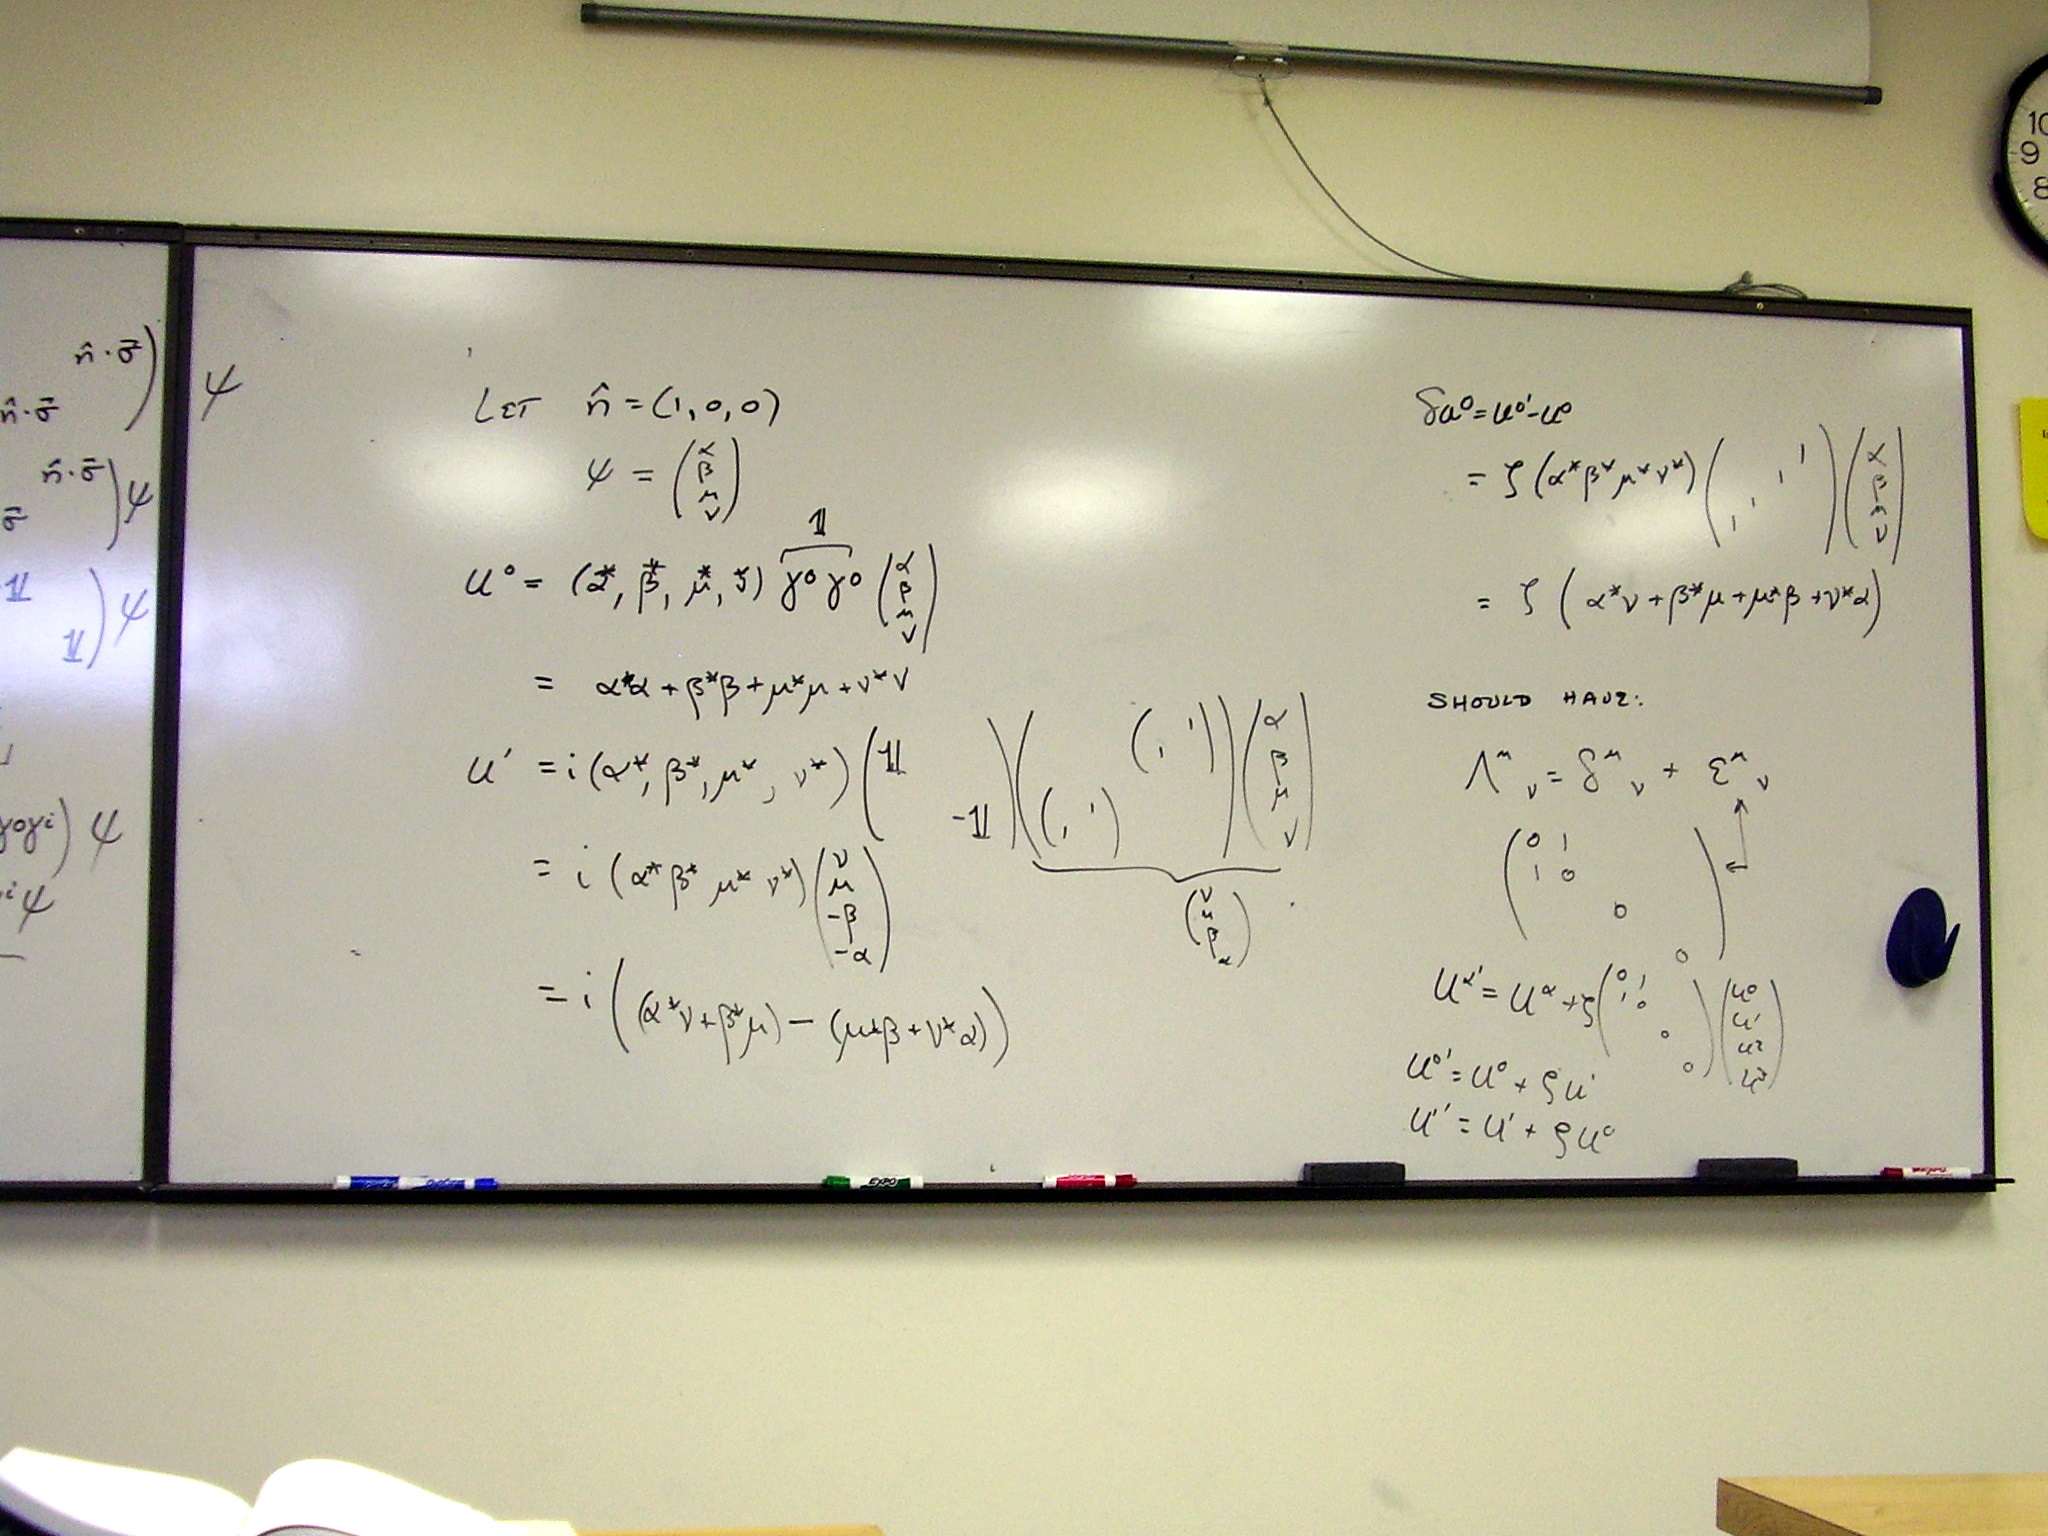 n̂·σ⃗)
n̂·σ⃗ ψ
n̂·σ⃗)ψ
σ⃗
𝟙 )ψ
𝟙
γ⁰γⁱ) ψ
ⁱψ
LET n̂ = (1, 0, 0)
ψ = (α β μ ν)
𝟙
u⁰ = (α*, β*, μ*, ν*) γ⁰γ⁰ (α β μ ν)
= α*α + β*β + μ*μ + ν*ν
u' = i(α*, β*, μ*, ν*) (𝟙 -𝟙) ((1 1) (1 1)) (α β μ ν)
= i (α* β* μ* ν*) (ν μ -β -α)
(ν μ β α)
= i ((α*ν + β*μ) - (μ*β + ν*α))
δu⁰ = u⁰' - u⁰
= ζ (α* β* μ* ν*) (1 1 1 1) (α β μ ν)
= ζ (α*ν + β*μ + μ*β + ν*α)
SHOULD HAVE:
Λ^μ_ν = δ^μ_ν + ε^μ_ν
(0 1
1 0
0
0)
u^α' = u^α + ζ (0 1 1 0 0 0) (u⁰ u¹ u² u³)
u⁰' = u⁰ + ζu'
u'' = u' + ζu⁰
EXPO
10
9
8